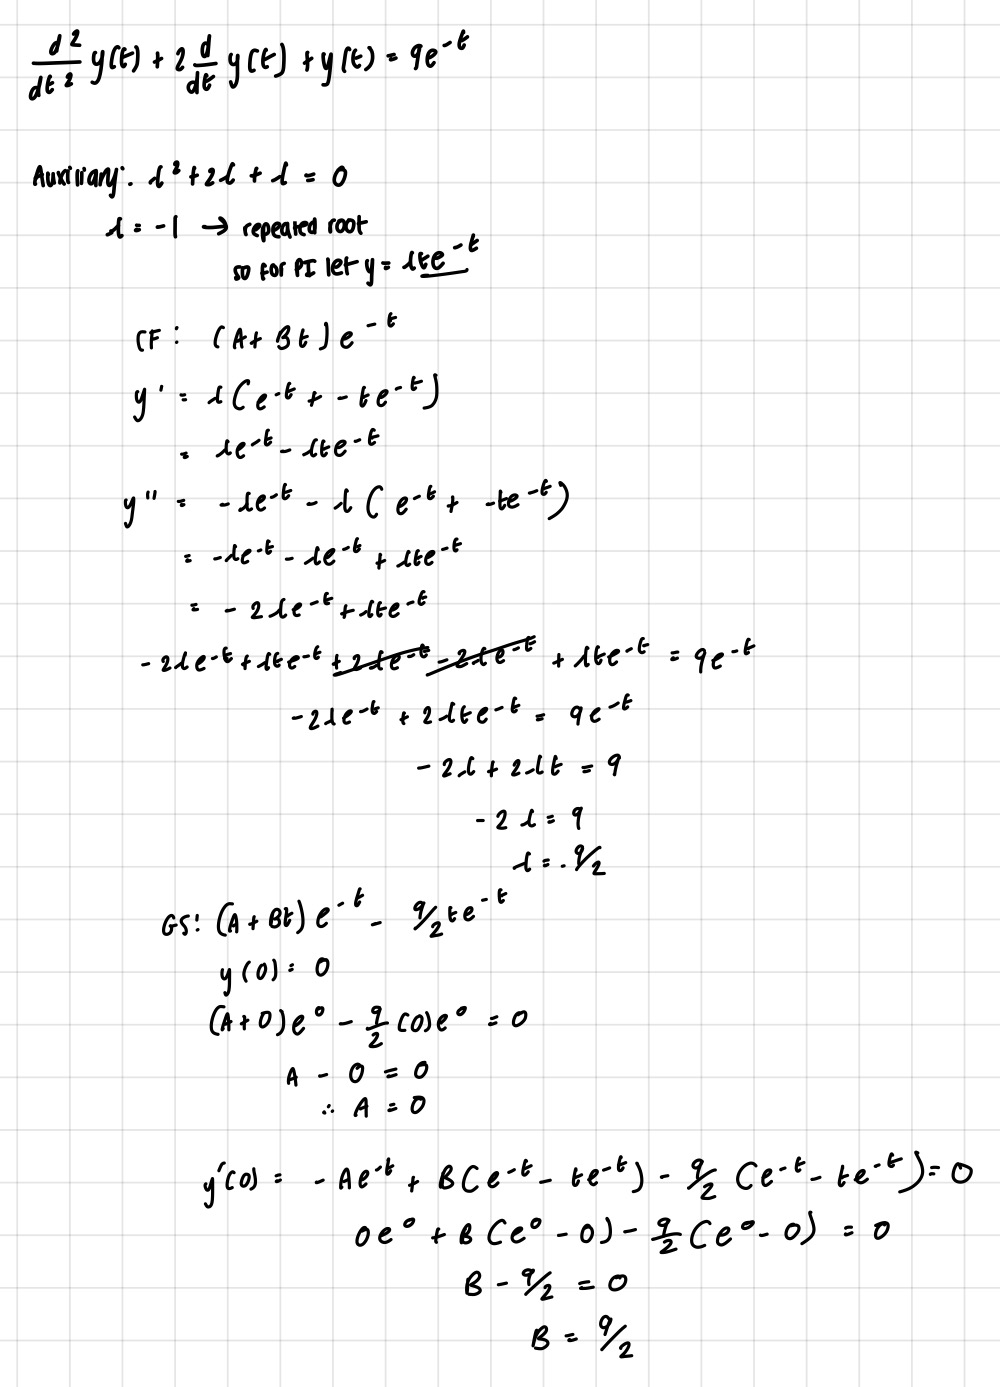 d²/dt² y(t) + 2 d/dt y(t) + y(t) = 9e^-t
Auxiliary: λ² + 2λ + λ = 0
λ = -1 → repeated root
so for PI let y = λte^-t
CF: (A + Bt)e^-t
y' = λ(e^-t + -te^-t)
= λe^-t - λte^-t
y'' = -λe^-t - λ(e^-t + -te^-t)
= -λe^-t - λe^-t + λte^-t
= -2λe^-t + λte^-t
-2λe^-t + λte^-t + 2λe^-t - 2λe^-t + λte^-t = 9e^-t
-2λe^-t + 2λte^-t = 9e^-t
-2λ + 2λt = 9
-2λ = 9
λ = -9/2
GS: (A + Bt)e^-t - 9/2 te^-t
y(0) = 0
(A + 0)e^0 - 9/2 (0)e^0 = 0
A - 0 = 0
∴ A = 0
y'(0) = -Ae^-t + B(e^-t - te^-t) - 9/2 (e^-t - te^-t) = 0
0e^0 + B(e^0 - 0) - 9/2 (e^0 - 0) = 0
B - 9/2 = 0
B = 9/2